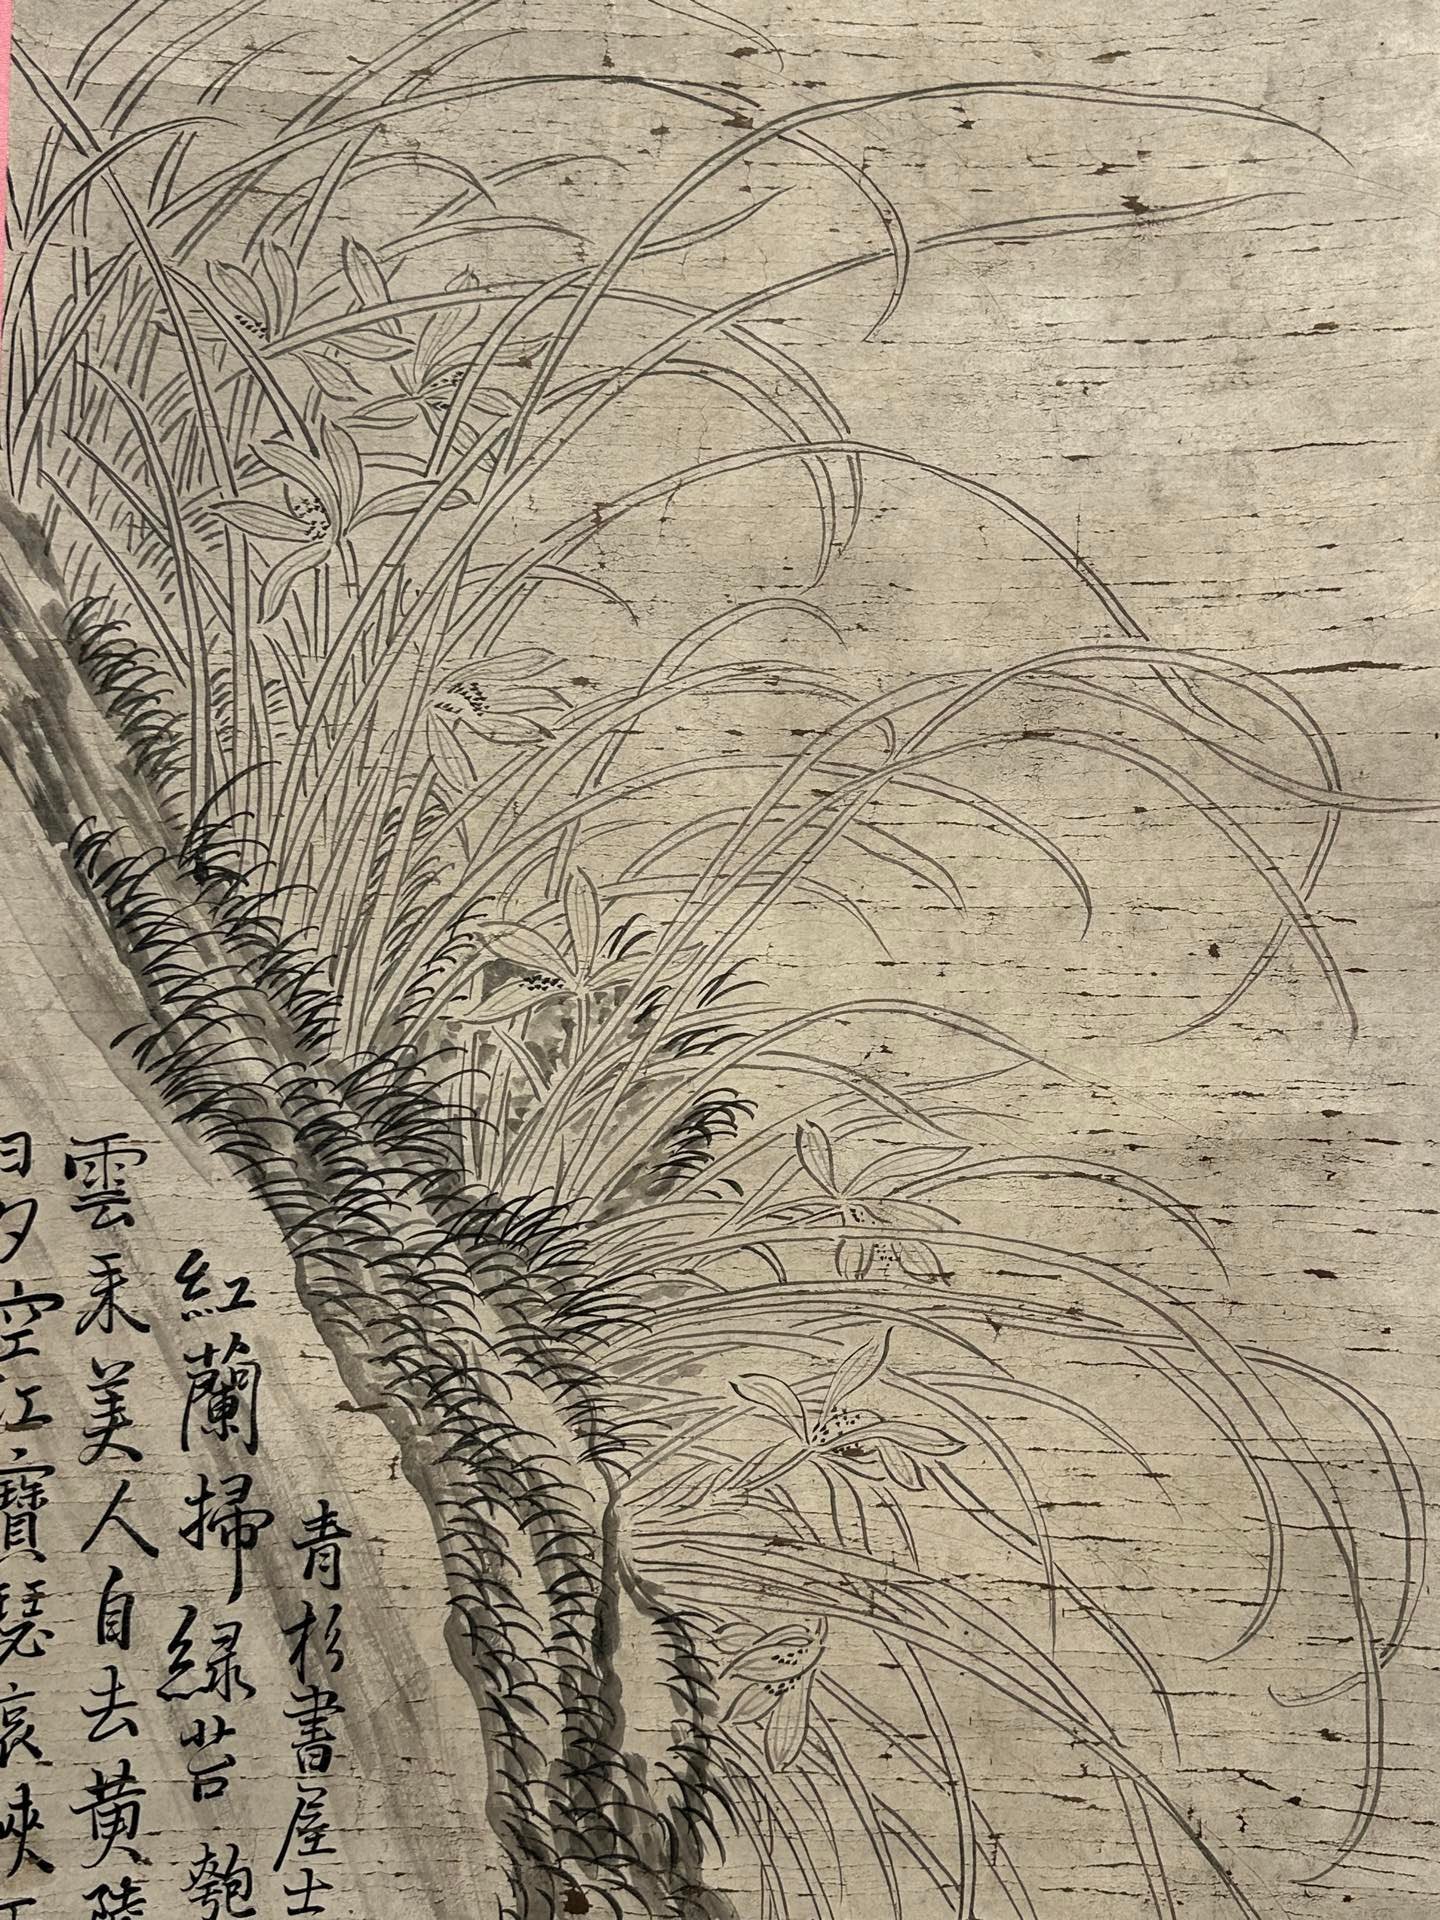 日夕空江寶瑟哀峽
雲来美人自去黄陵
紅蘭掃綠苔匏
青杉書屋士